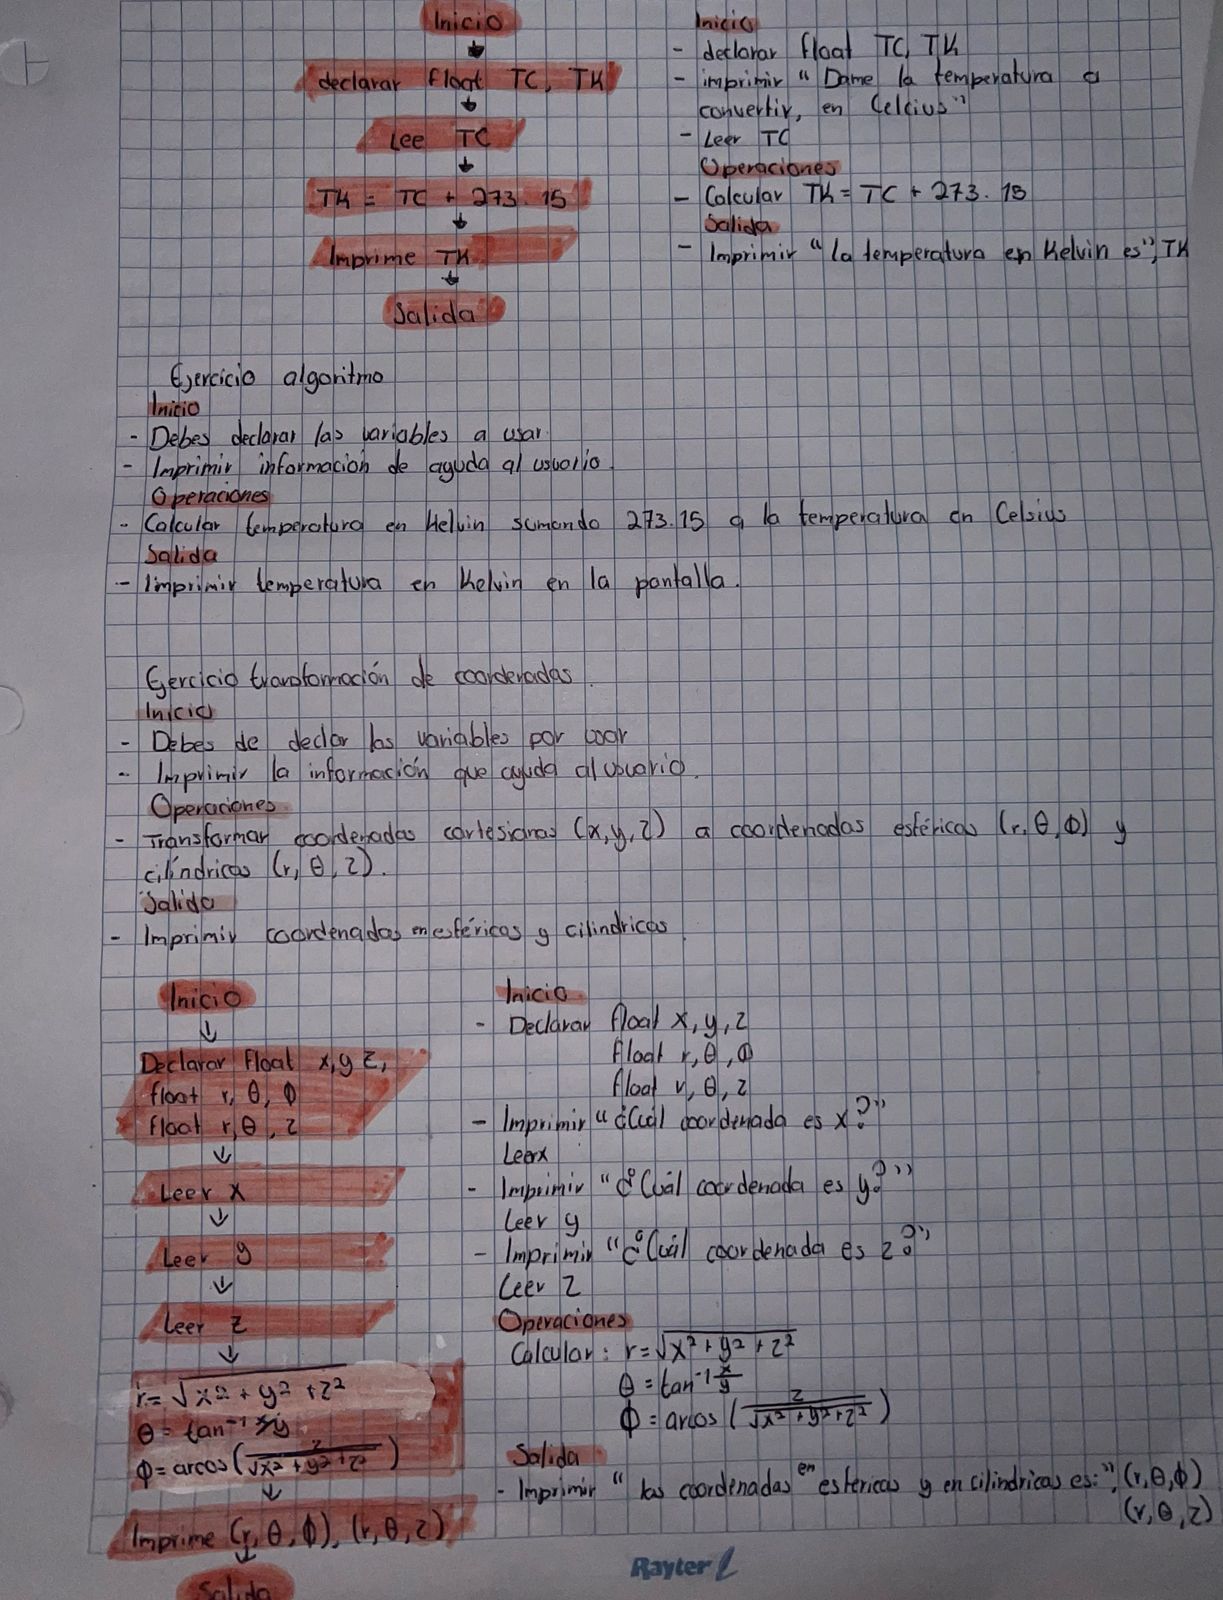 Inicio
declarar float TC, TK
Lee TC
TK = TC + 273.15
Imprime TK
Salida
Inicio
- declarar float TC, TK
- imprimir "Dame la temperatura a
convertir, en Celcius"
- Leer TC
Operaciones
- Calcular TK = TC + 273.15
Salida
- Imprimir "la temperatura en Kelvin es", TK
Ejercicio algoritmo
Inicio
- Debes declarar las variables a usar.
- Imprimir información de ayuda al usuario
Operaciones
- Calcular temperatura en Kelvin sumando 273.15 a la temperatura en Celsius
Salida
- Imprimir temperatura en Kelvin en la pantalla.
Ejercicio transformación de coordenadas.
Inicio
- Debes de declar las variables por
- Imprimir la información que ayuda al usuario.
Operaciones
- Transformar coordenadas cartesianas (x,y,z) a coordenadas esféricas (r,θ,Φ) y
cilíndricas (r,θ,z).
Salida
- Imprimir coordenadas en esféricas y cilindricas
Inicio
Declarar float x,y z,
float r, θ, Φ
float r, θ, z
Leer x
Leer y
Leer z
r= √x² + y² + z²
θ = tan⁻¹ x/y
Φ = arcos (z/√x² + y² + z²)
Imprime (r, θ, Φ), (r, θ, z)
Salida
Inicio
- Declarar float x, y, z
float r, θ, Φ
float r, θ, z
- Imprimir "¿Cuál coordenada es x?"
Leer x
- Imprimir "¿Cuál coordenada es y?"
Leer y
- Imprimir "¿Cuál coordenada es z?"
Leer z
Operaciones
Calcular: r = √x² + y² + z²
θ = tan⁻¹ x/y
Φ = arcos (z/√x² + y² + z²)
Salida
- Imprimir "las coordenadas en esfericas y en cilindricas es:", (r,θ,Φ)
(r,θ,z)
Rayter